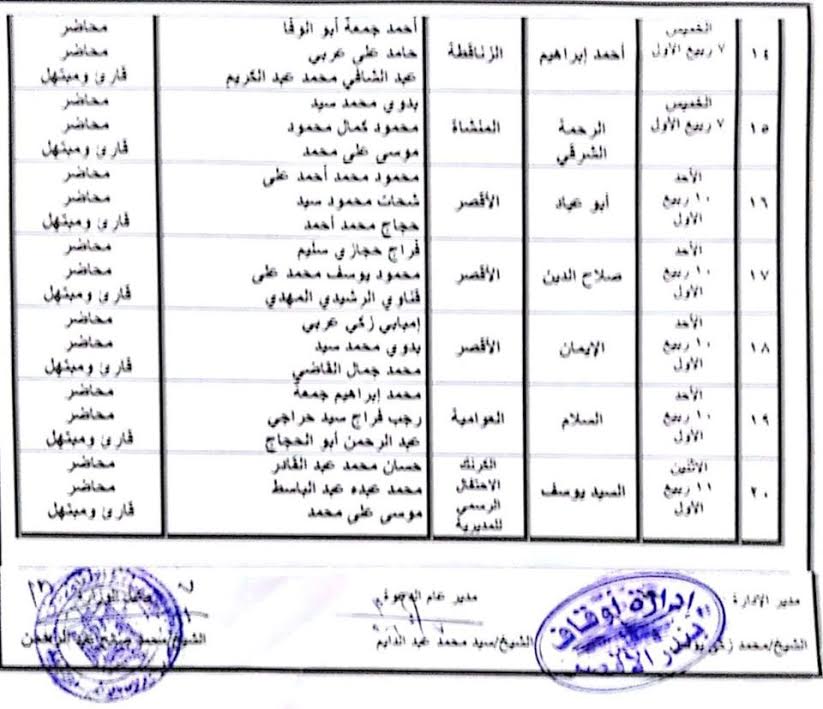 أحمد جمعة أبو الوفا محاضر
١٤ الخميس ٧ ربيع الأول أحمد إبراهيم الزناقطة حامد على عربي محاضر
عبد الشافي محمد عبد الكريم قارئ ومبتهل
١٥ الخميس ٧ ربيع الأول الرحمة الشرقي المنشاة بدوي محمد سيد محاضر
محمود كمال محمود محاضر
موسى على محمد قارئ ومبتهل
١٦ الأحد ١٠ ربيع الأول أبو عياد الأقصر محمود محمد أحمد على محاضر
شحات محمود سيد محاضر
حجاج محمد أحمد قارئ ومبتهل
١٧ الأحد ١٠ ربيع الأول صلاح الدين الأقصر فراج حجازي سليم محاضر
محمود يوسف محمد على محاضر
قناوي الرشيدي المهدي قارئ ومبتهل
١٨ الأحد ١٠ ربيع الأول الإيمان الأقصر إمبابي زكي عربي محاضر
بدوي محمد سيد محاضر
محمد جمال القاضي قارئ ومبتهل
١٩ الأحد ١٠ ربيع الأول السلام العوامية محمد إبراهيم جمعة محاضر
رجب فراج سيد حراجي محاضر
عبد الرحمن أبو الحجاج قارئ ومبتهل
٢٠ الاثنين ١١ ربيع الأول السيد يوسف الكرنك الاحتفال الرسمي للمديرية حسان محمد عبد القادر محاضر
محمد عبده عبد الباسط محاضر
موسى على محمد قارئ ومبتهل
مدير الإدارة مدير عام الوزارة
الشيخ/محمد زكي الشيخ/سيد محمد عبد الدايم الشيخ/محمد صالح عبد الرحمن
إدارة أوقاف
بندر الأقصر